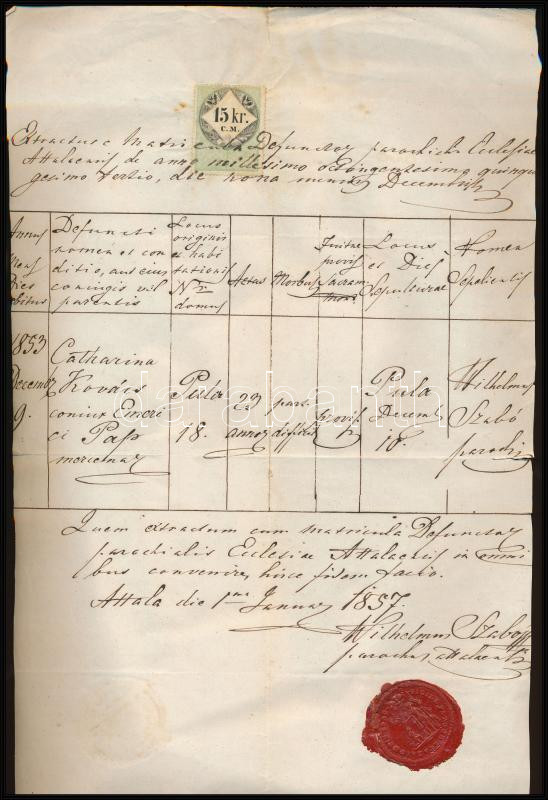 15 kr.
C.M.
Extractus e Matricula Defunctor parochialis Ecclesiae
Attalaensis de anno millesimo octingentesimo quinqua
gesimo tertio, die nona mensis Decembris
Annus
Mens
Dies
obitus
Defuncti
nomen et con
ditio, aut ejus
conjugis vel
parentis
Locus
originis
et habi
tationis
Nr.
domus
Aetas
Morbus
provis
Sacram
Locus
et Dies
Sepulturae
Nomen
Sepelientis
1853
Decemb
9.
Catharina
Kovács
coniux Emeri
ci Pap
Pula
18.
22
annor
part
diffic
Provis
Pula
Decemb
18.
Wilhelmus
Szabó
paroch
Quem extractum cum matricula Defunctor
parochialis Ecclesiae Attalaensis in omni
bus convenire, hisce fidem facio.
Attala die 1ma Januar 1857.
Wilhelmus Szabó
parochus attalaensis
darabanth